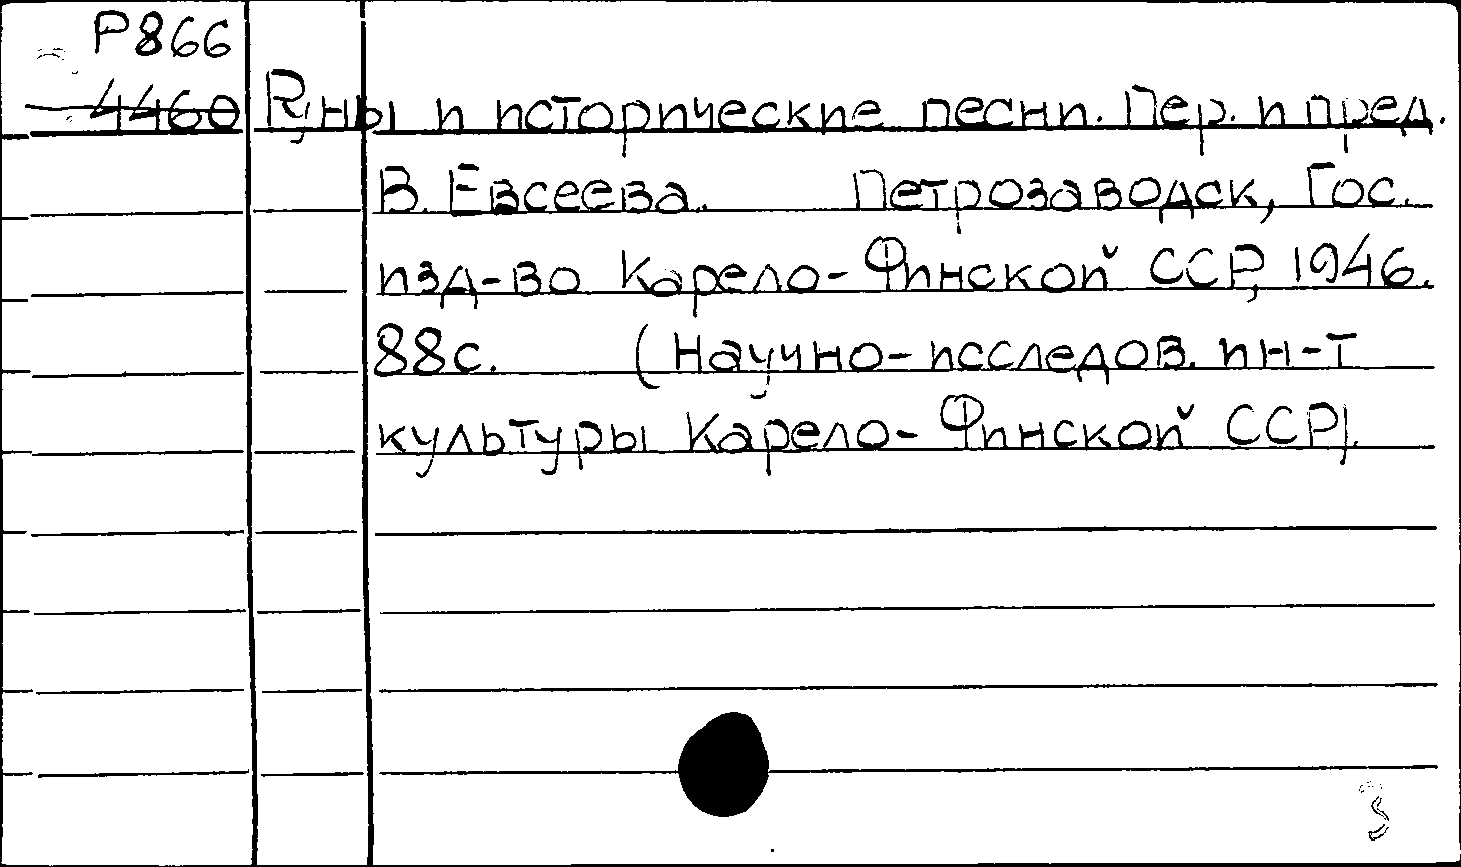 Р866
4460 Руны и исторические песни. Пер. и пред.
В. Евсеева. Петрозаводск, Гос.
изд-во Карело-Финской ССР, 1946.
88с. (Научно-исследов. ин-т
культуры Карело-Финской ССР).
3